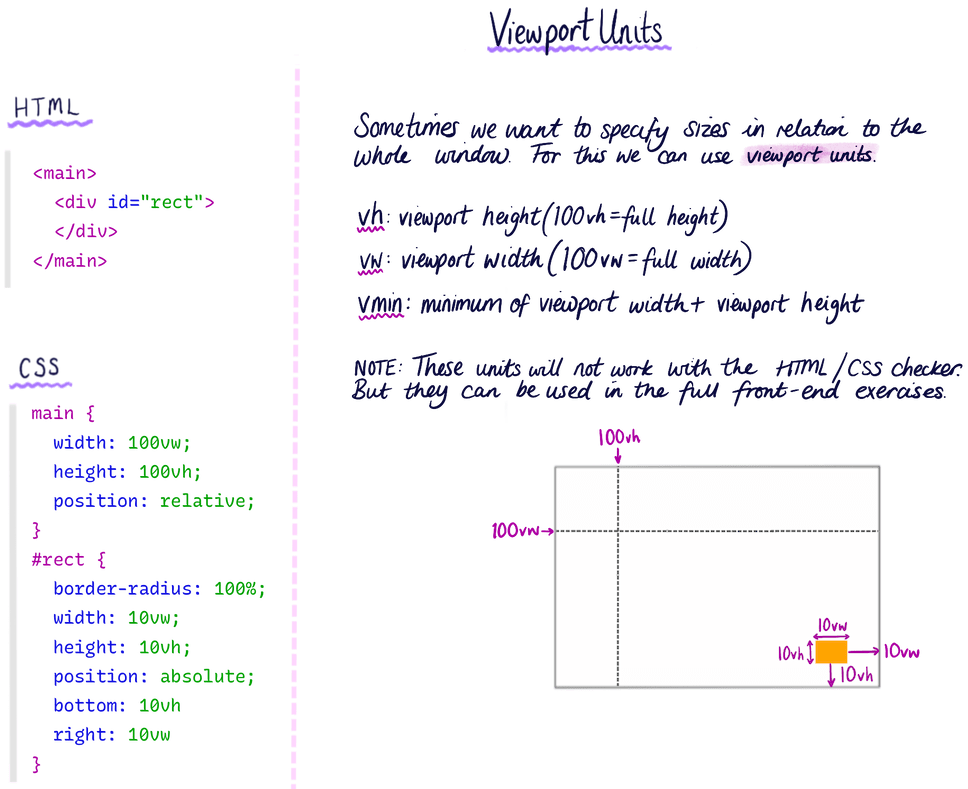 Viewport Units
HTML
<main>
<div id="rect">
</div>
</main>
CSS
main {
width: 100vw;
height: 100vh;
position: relative;
}
#rect {
border-radius: 100%;
width: 10vw;
height: 10vh;
position: absolute;
bottom: 10vh
right: 10vw
}
Sometimes we want to specify sizes in relation to the
whole window. For this we can use viewport units.
vh: viewport height (100vh = full height)
vw: viewport width (100vw = full width)
vmin: minimum of viewport width + viewport height
NOTE: These units will not work with the HTML/CSS checker.
But they can be used in the full front-end exercises.
100vh
100vw
10vw
10vh
10vw
10vh